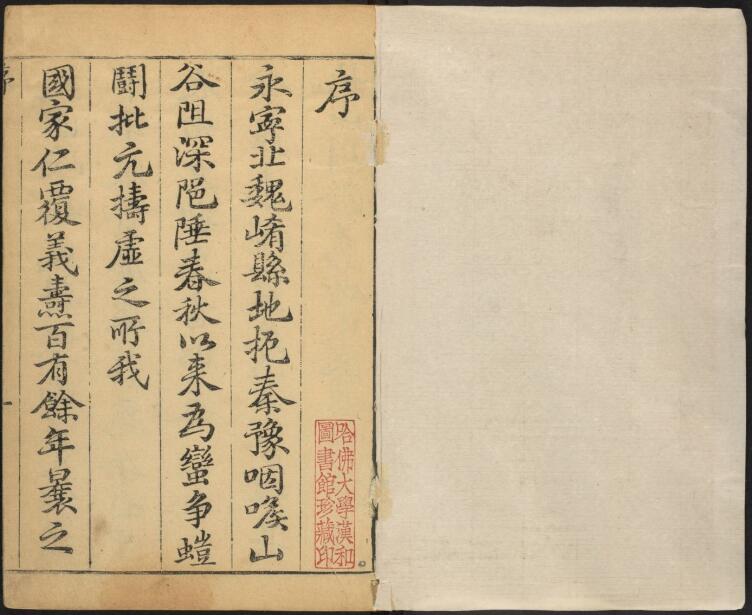 序
永寧北魏崤縣地扼秦豫咽喉山
谷阻深阸陲春秋以来為蠻争螘
鬭批亢擣虛之所我
國家仁覆義燾百有餘年曩之
哈佛大學漢和
圖書館珍藏印
序
一